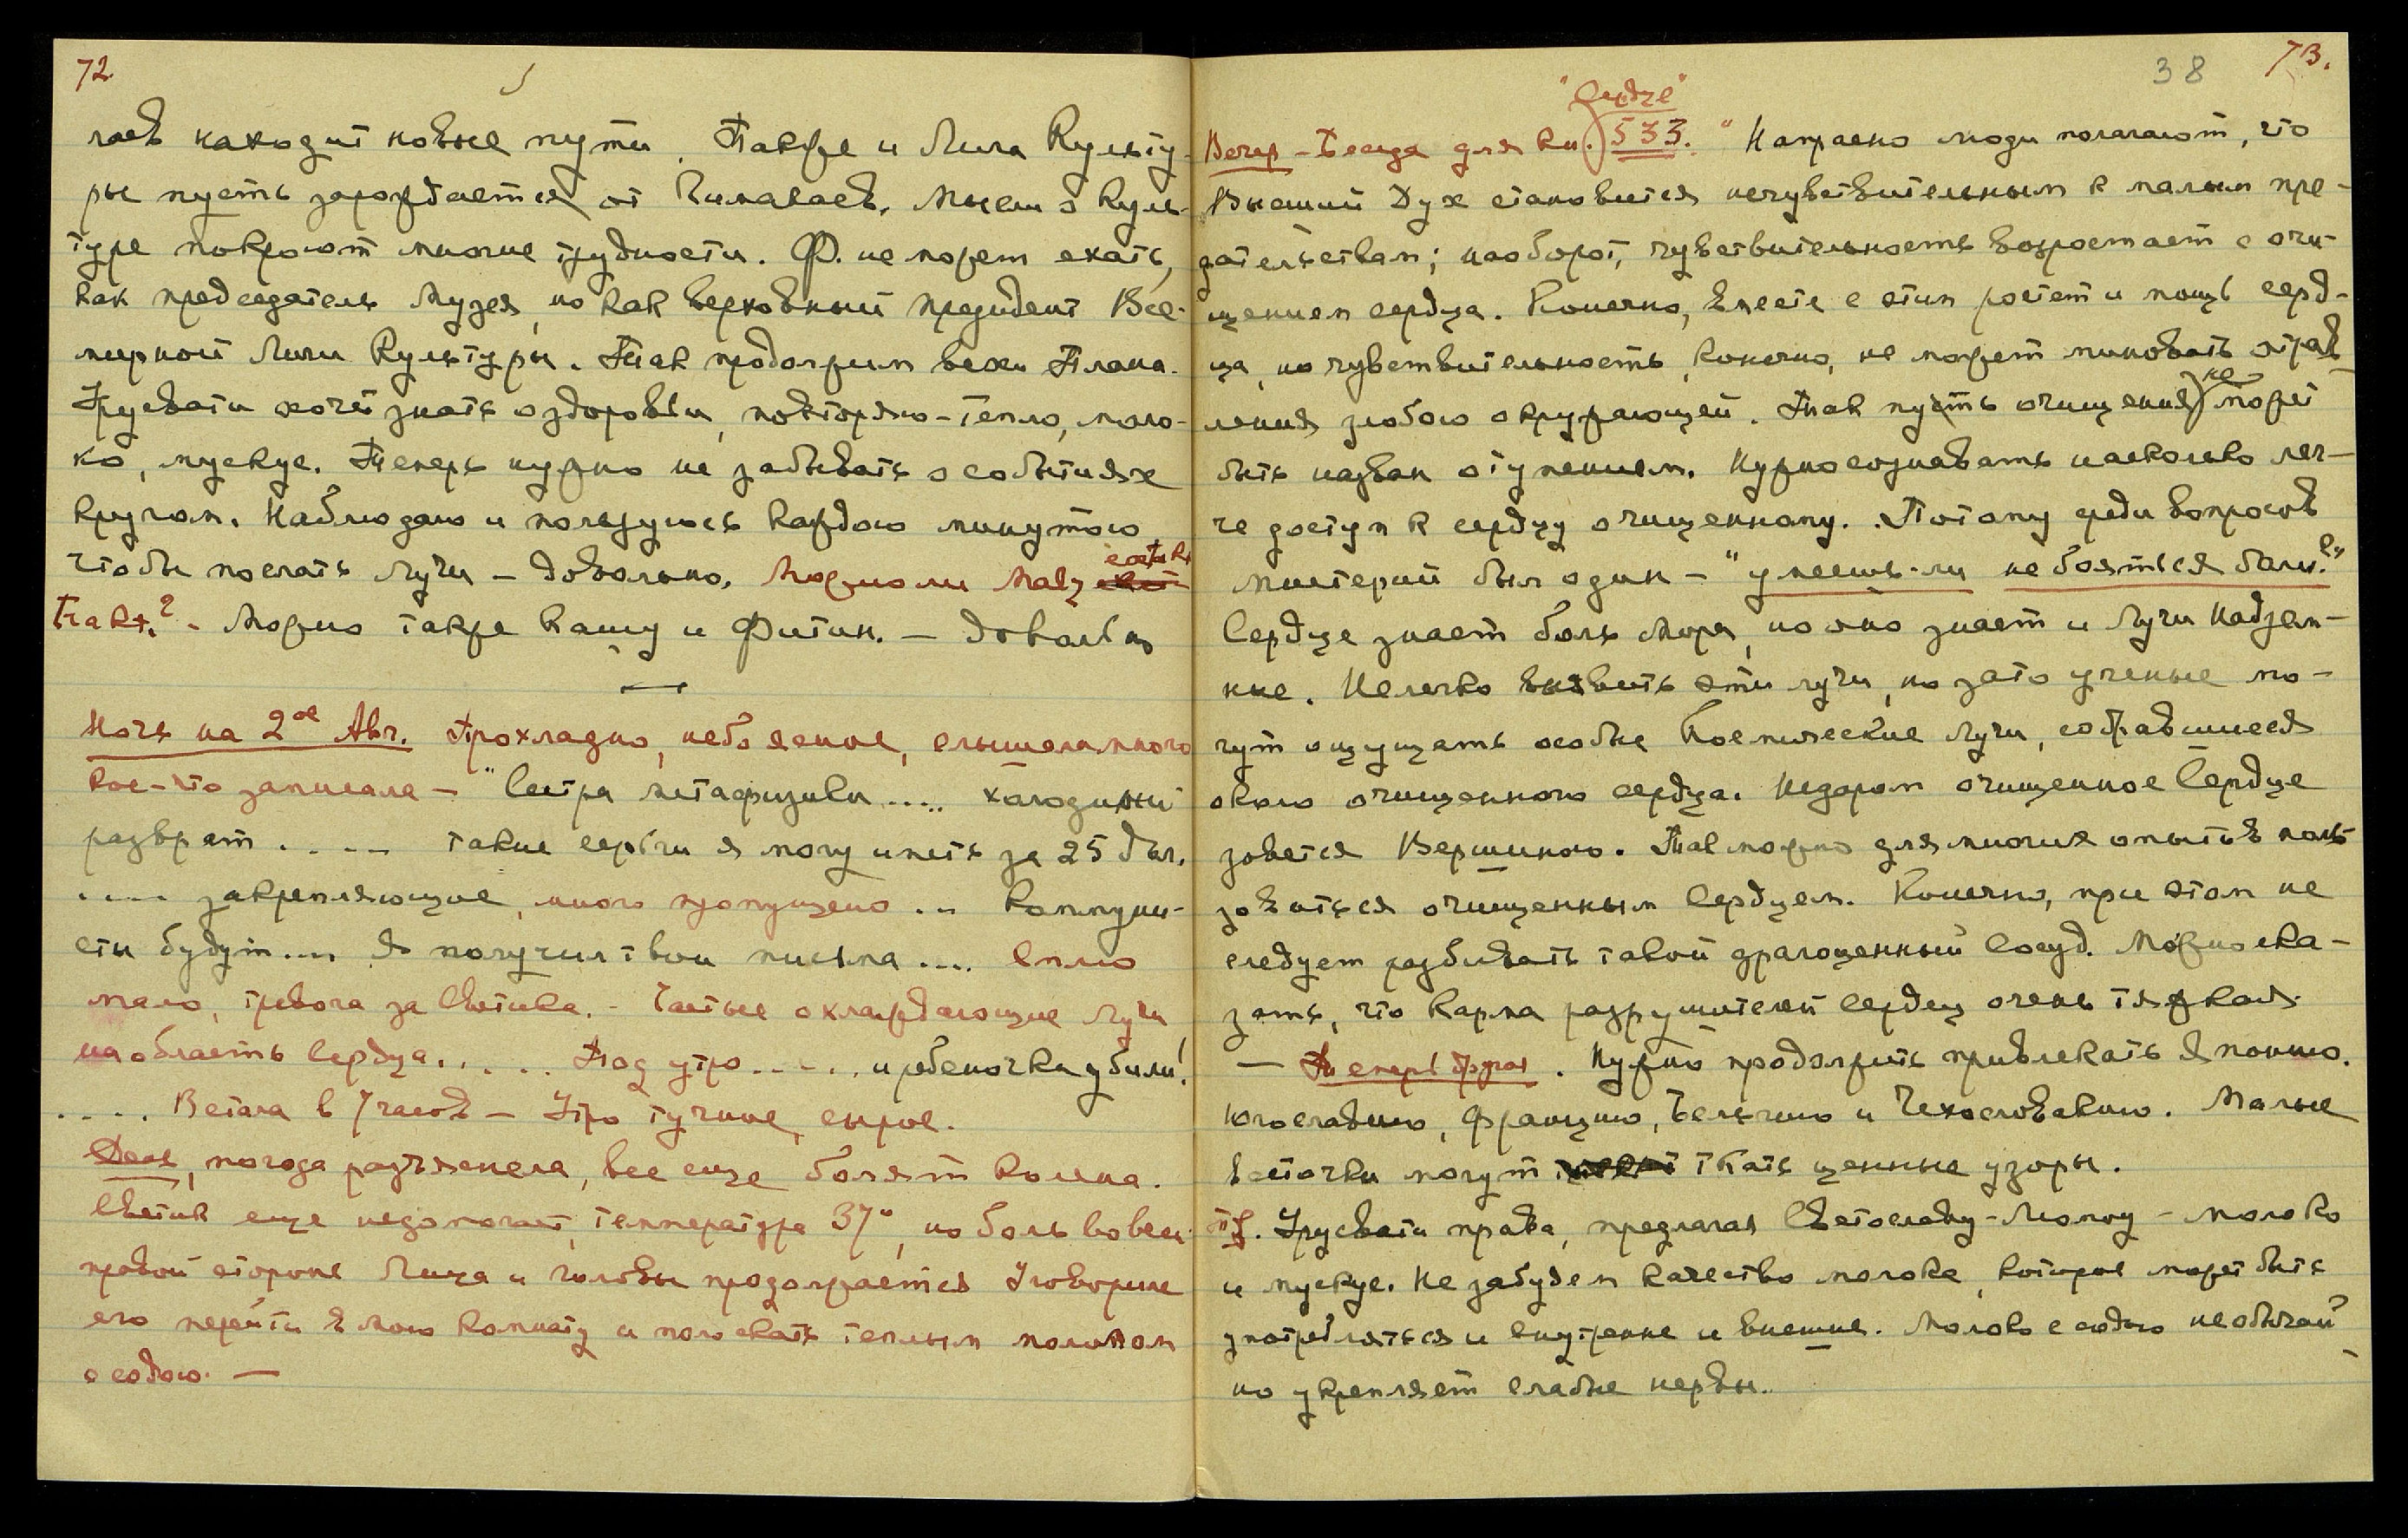 72
лаев находит новые пути. Также и Лига Культу-
ры пусть зарождается от Гималаев. Мысли о Куль-
туре покроют многие трудности. Ф. не может ехать,
как председатель Музея, но как верховный президент Все-
мирной Лиги Культуры. Так продолжим вехи Плана.
Урусвати хочет знать о здоровьи, повторяю - тепло, моло-
ко, мускус. Теперь нужно не забывать о событиях
кругом. Наблюдаю и пользуюсь каждою минутою
чтобы послать Лучи - довольно. Можно ли Malz
Trakt.? - Можно также кашу и Фитин. - Довольно
Ночь на 2ое Авг. Прохладно, небо ясное, слышала много
кое-что записала - "Сестра метафизики ..... холодный
разврат ..... такие серьги я могу иметь за 25 дол.
.... закрепляющее, много пропущено ... Коммуни-
сты будут .... Я получил твои письма .... Сплю
мало, тревога за Светика. - Частые охлаждающие Лучи
на область Сердца. ..... Под утро ..... и ребеночка убили!
.... Встала в 7 часов - Утро тучное, сырое.
День, погода разъяснела, все еще болят колена.
Светик еще недомогает, температура 37°, но боль во всей
правой стороне Лица и головы продолжается Уговорили
его перейти в мою комнату и полоскать теплым молоком
с содою. —
38 73.
"Сердце"
Вечер - Беседа для кн. 533. "Напрасно люди полагают, что
Высший Дух становится нечувствительным к малым пре-
дательствам; наоборот, чувствительность возростает с очи-
щением сердца. Конечно, вместе с этим ростет и мощь серд-
ца, но чувствительность, конечно, не может миновать отрав-
ления злобою окружающей. Так путь очищения не может
быть назван отупением. Нужно сознавать насколько лег-
че доступ к сердцу очищенному. Потому среди вопросов
мистерий был один - "умеешь-ли не бояться боли?"
Сердце знает боль Мора, но оно знает и Лучи Надзем-
ные. Нелегко выявить эти лучи, но зато ученые мо-
гут ощущать особые Космические Лучи, собравшиеся
около очищенного сердца. Недаром очищенное Сердце
зовется Вершиною. Так можно для многих опытов поль-
зоваться очищенным Сердцем. Конечно, при этом не
следует разбивать такой драгоценный Сосуд. Можно ска-
зать, что карма разрушителей Сердец очень тяжкая.
— Теперь другое. Нужно продолжить привлекать Японию.
Югославию, Францию, Бельгию и Чехословакию. Малые
весточки могут ткать ценные узоры.
Урусвати права, предлагая Светославу-Люмоу - молоко
и мускус. Не забудем качество молока, которое может быть
употребляться и внутренне и внешне. Молоко с содою необычай-
но укрепляет слабые нервы.